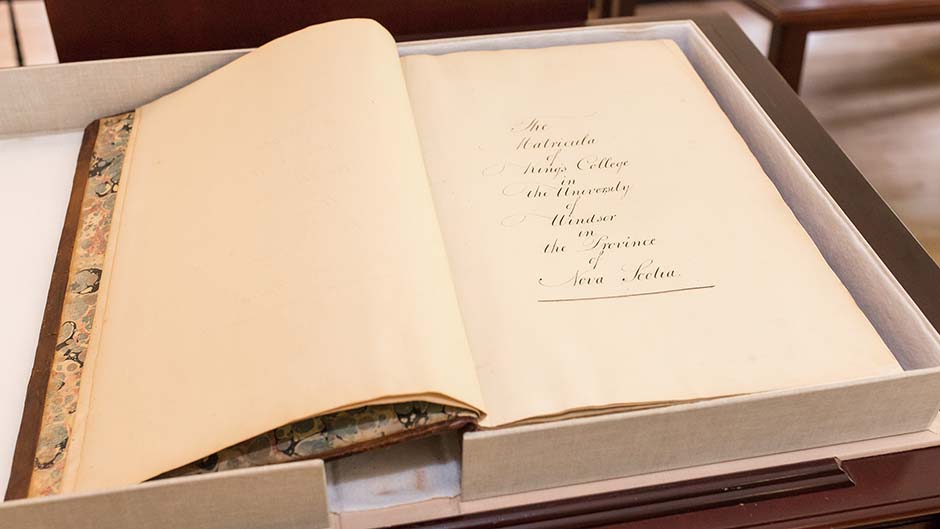 The
Matricula
of
King's College
in
the University
of
Windsor
in
the Province
of
Nova Scotia.